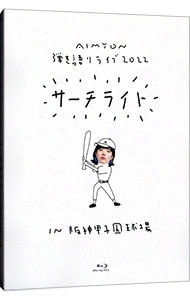 AIMYON
弾き語りライブ2022
サーチライト
IN 阪神甲子園球場
Blu-ray Disc